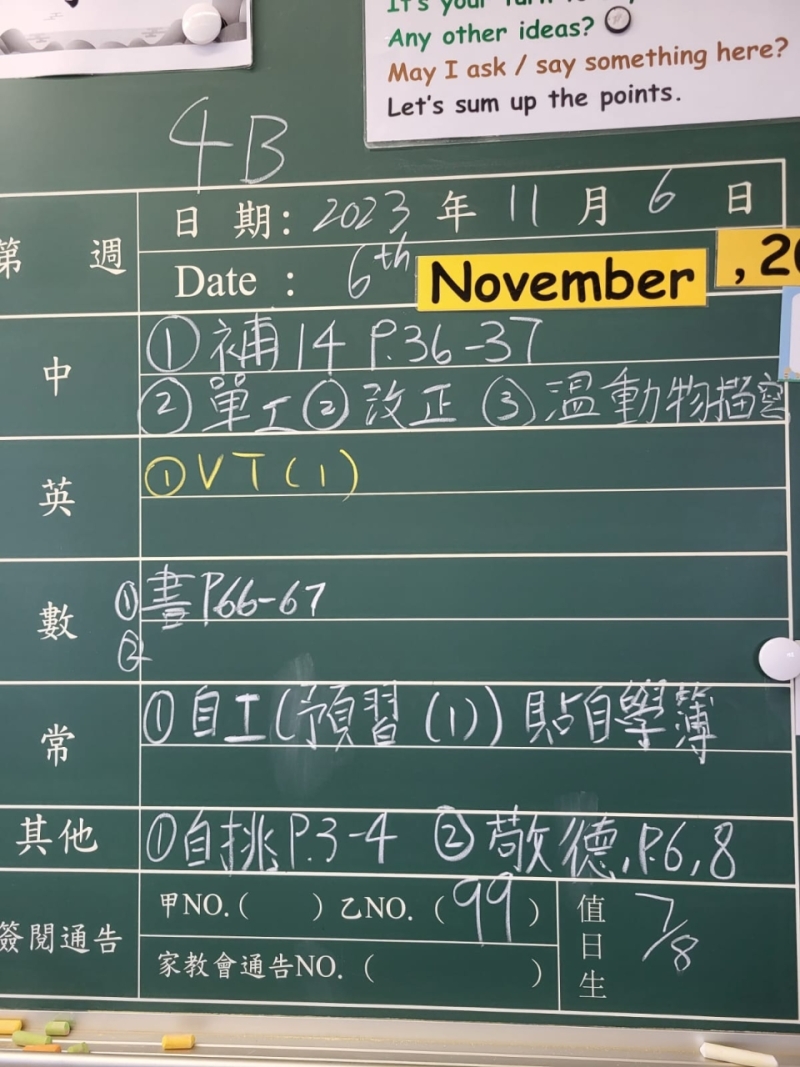 Any other ideas?
May I ask / say something here?
Let's sum up the points.
4B
第 週
日 期: 2023 年 11 月 6 日
Date : 6th November , 20
中
① 補14 P.36-37
② 單工 ② 改正 ③ 溫動物描寫
英
① VT (1)
數
① 書P.66-67
②
常
① 自工(預習(1)) 貼自學簿
其他
① 自挑P.3-4 ② 敬德,P.6,8
簽閱通告
甲NO.( ) 乙NO. ( 99 )
家教會通告NO. ( )
值日生
7/8